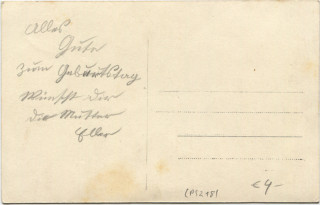 Alles
Gute
zum Geburtstag
Wünscht dir
die Mutter
Eller
(P)2181
€4-